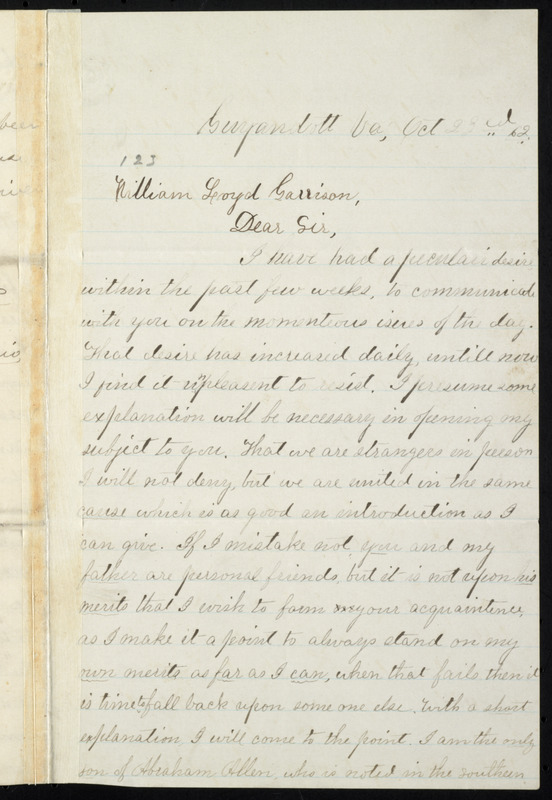 Guyandott Va, Oct 23rd 62.
123
William Loyd Garrison,
Dear Sir,
I have had a peculair desire
within the past few weeks, to communicate
with you on the momenteous isues of the day.
That desire has increased daily, untill now
I find it unpleasent to resist. I presume some
explanation will be necessary in opening my
subject to you. That we are strangers in person
I will not deny, but we are united in the same
cause which is as good an introduction as I
can give. If I mistake not, you and my
father are personal friends, but it is not upon his
merits that I wish to form your acquaintence,
as I make it a point to always stand on my
own merits as far as I can, when that fails then it
is time to fall back upon some one else. With a short
explanation, I will come to the point. I am the only
son of Abraham Allen, who is noted in the southern